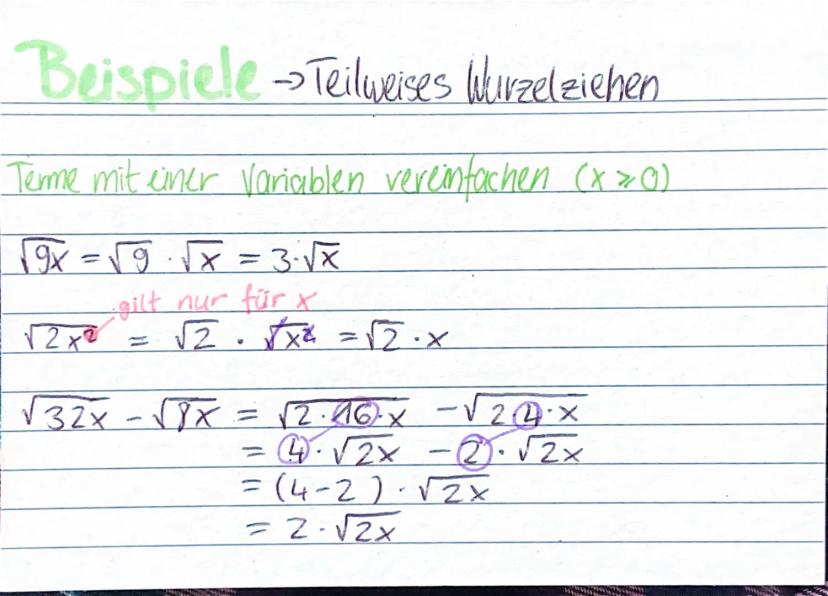 Beispiele → Teilweises Wurzelziehen
Terme mit einer Variablen vereinfachen (x ⩾ 0)
√9x = √9 · √x = 3·√x
gilt nur für x
√2x² = √2 · √x² = √2 · x
√32x - √8x = √2·16·x - √2 4·x
= 4·√2x - 2·√2x
= (4-2) · √2x
= 2·√2x